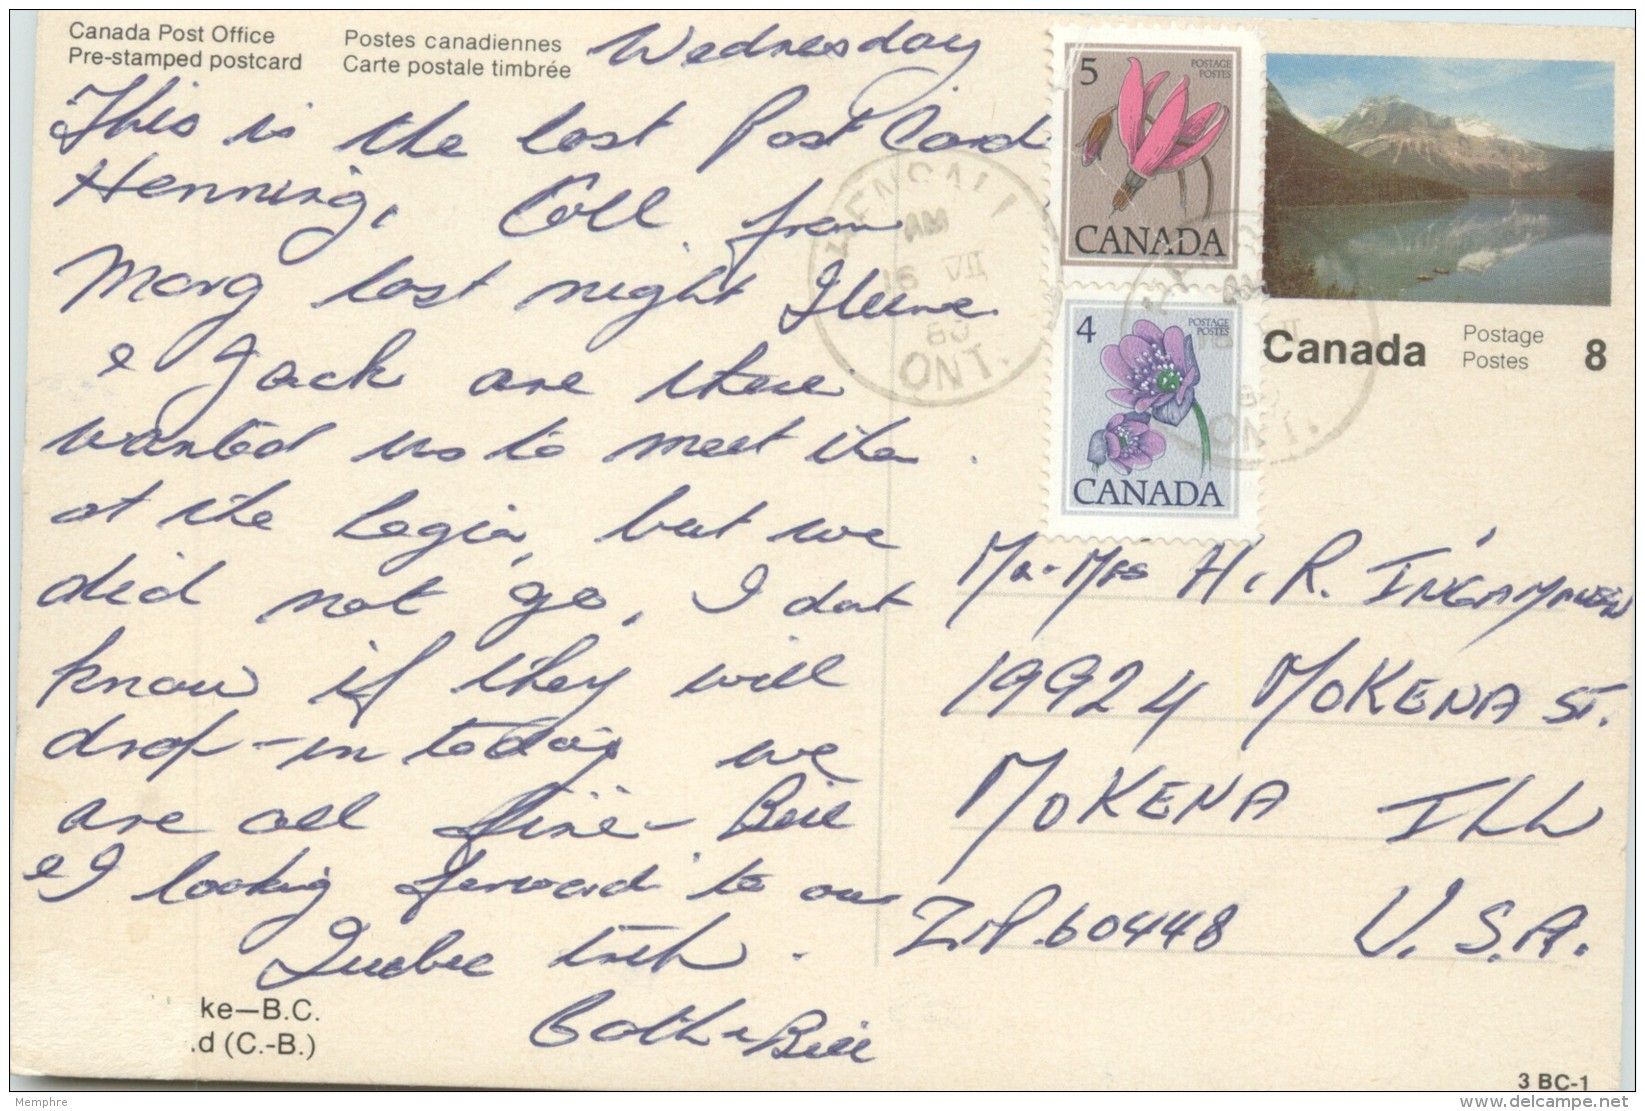 Canada Post Office
Pre-stamped postcard
Postes canadiennes
Carte postale timbrée
Wednesday
This is the last Post Card
Henning, Call from
Marg last night Ileene
& Jack are there
wanted us to meet them
at the Legion, but we
did not go, I dont
know if they will
drop-in today we
are all fine- Bill
& I looking forward to our
Quebec trek.
Bill
ke—B.C.
d (C.-B.)
5
POSTAGE
POSTES
CANADA
4
POSTAGE
POSTES
CANADA
Canada
Postage
Postes
8
AM
16 VII
80
ONT.
Mr-Mrs H. R.
19924 MOKENA ST.
MOKENA ILL
ZIP. 60448 U.S.A.
3 BC-1
Memphre